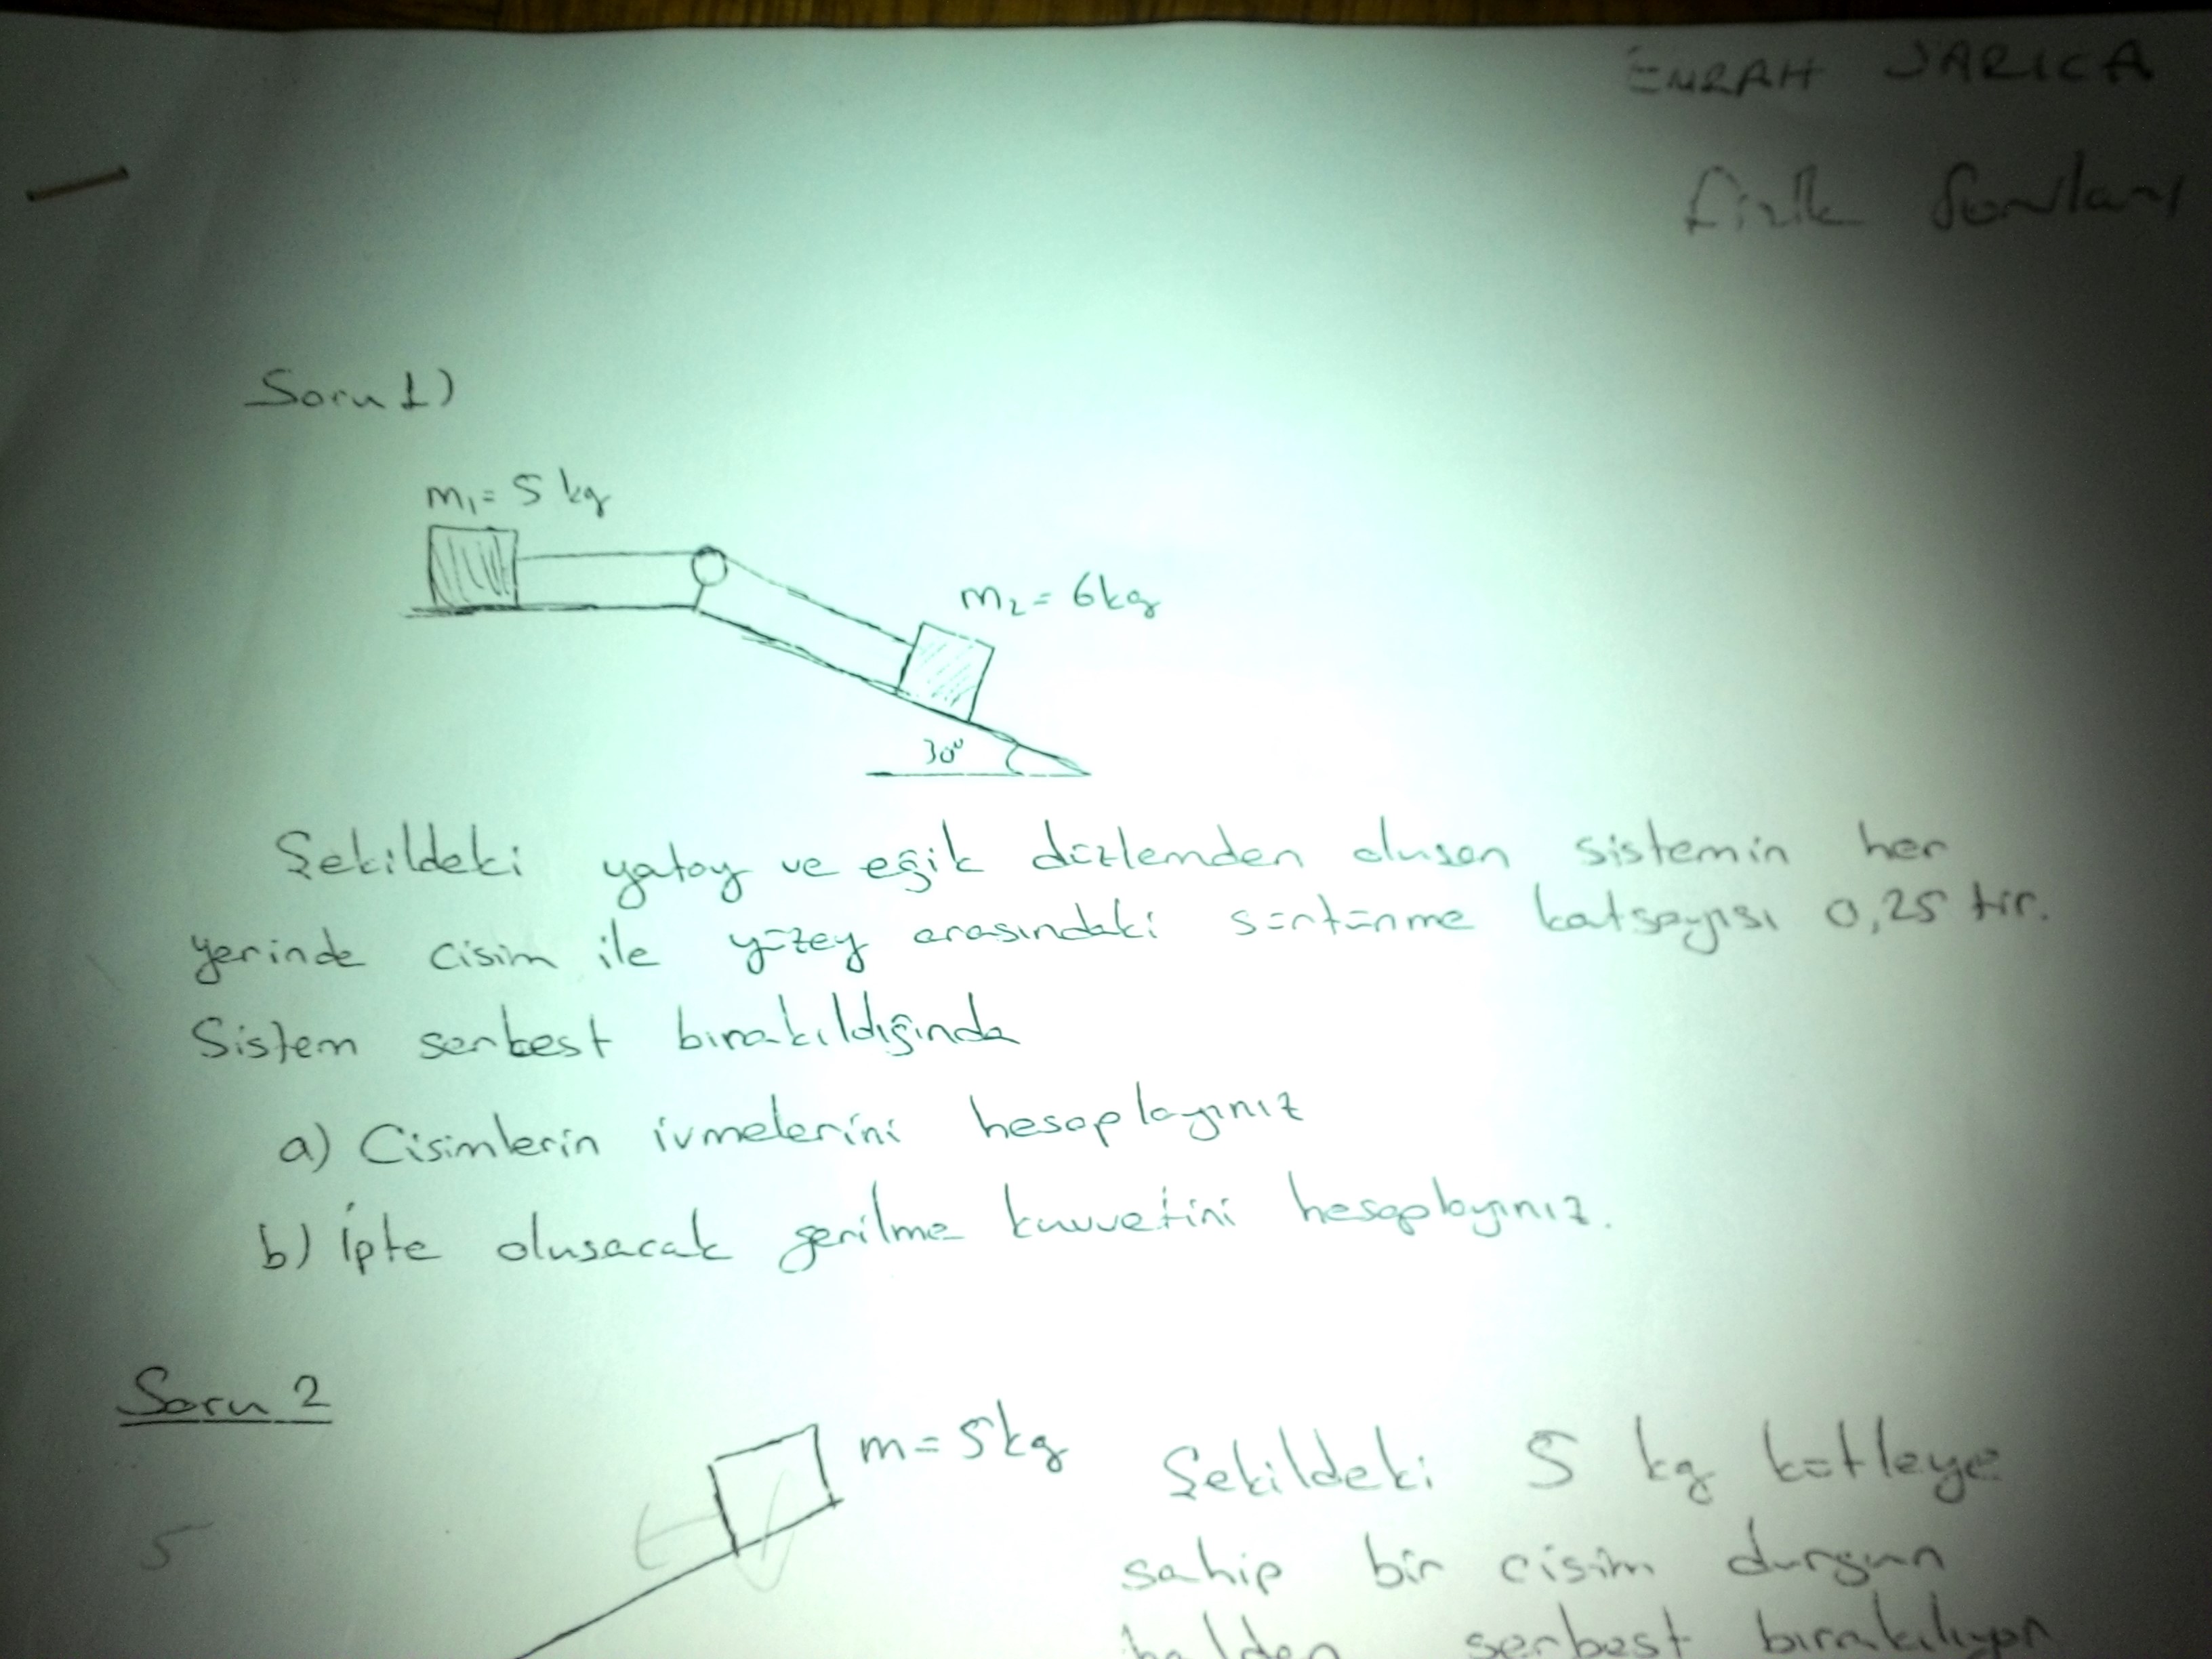 EMRAH SARICA
Fizik Soruları
Soru 1)
m₁= 5 kg
m₂= 6kg
30°
Şekildeki yatay ve eğik düzlemden oluşan sistemin her
yerinde cisim ile yüzey arasındaki sürtünme katsayısı 0,25 tir.
Sistem serbest bırakıldığında
a) Cisimlerin ivmelerini hesaplayınız
b) İpte oluşacak gerilme kuvvetini hesaplayınız.
Soru 2
m=5kg
Şekildeki 5 kg kütleye
5
sahip bir cisim durgun
halden serbest bırakılıyor